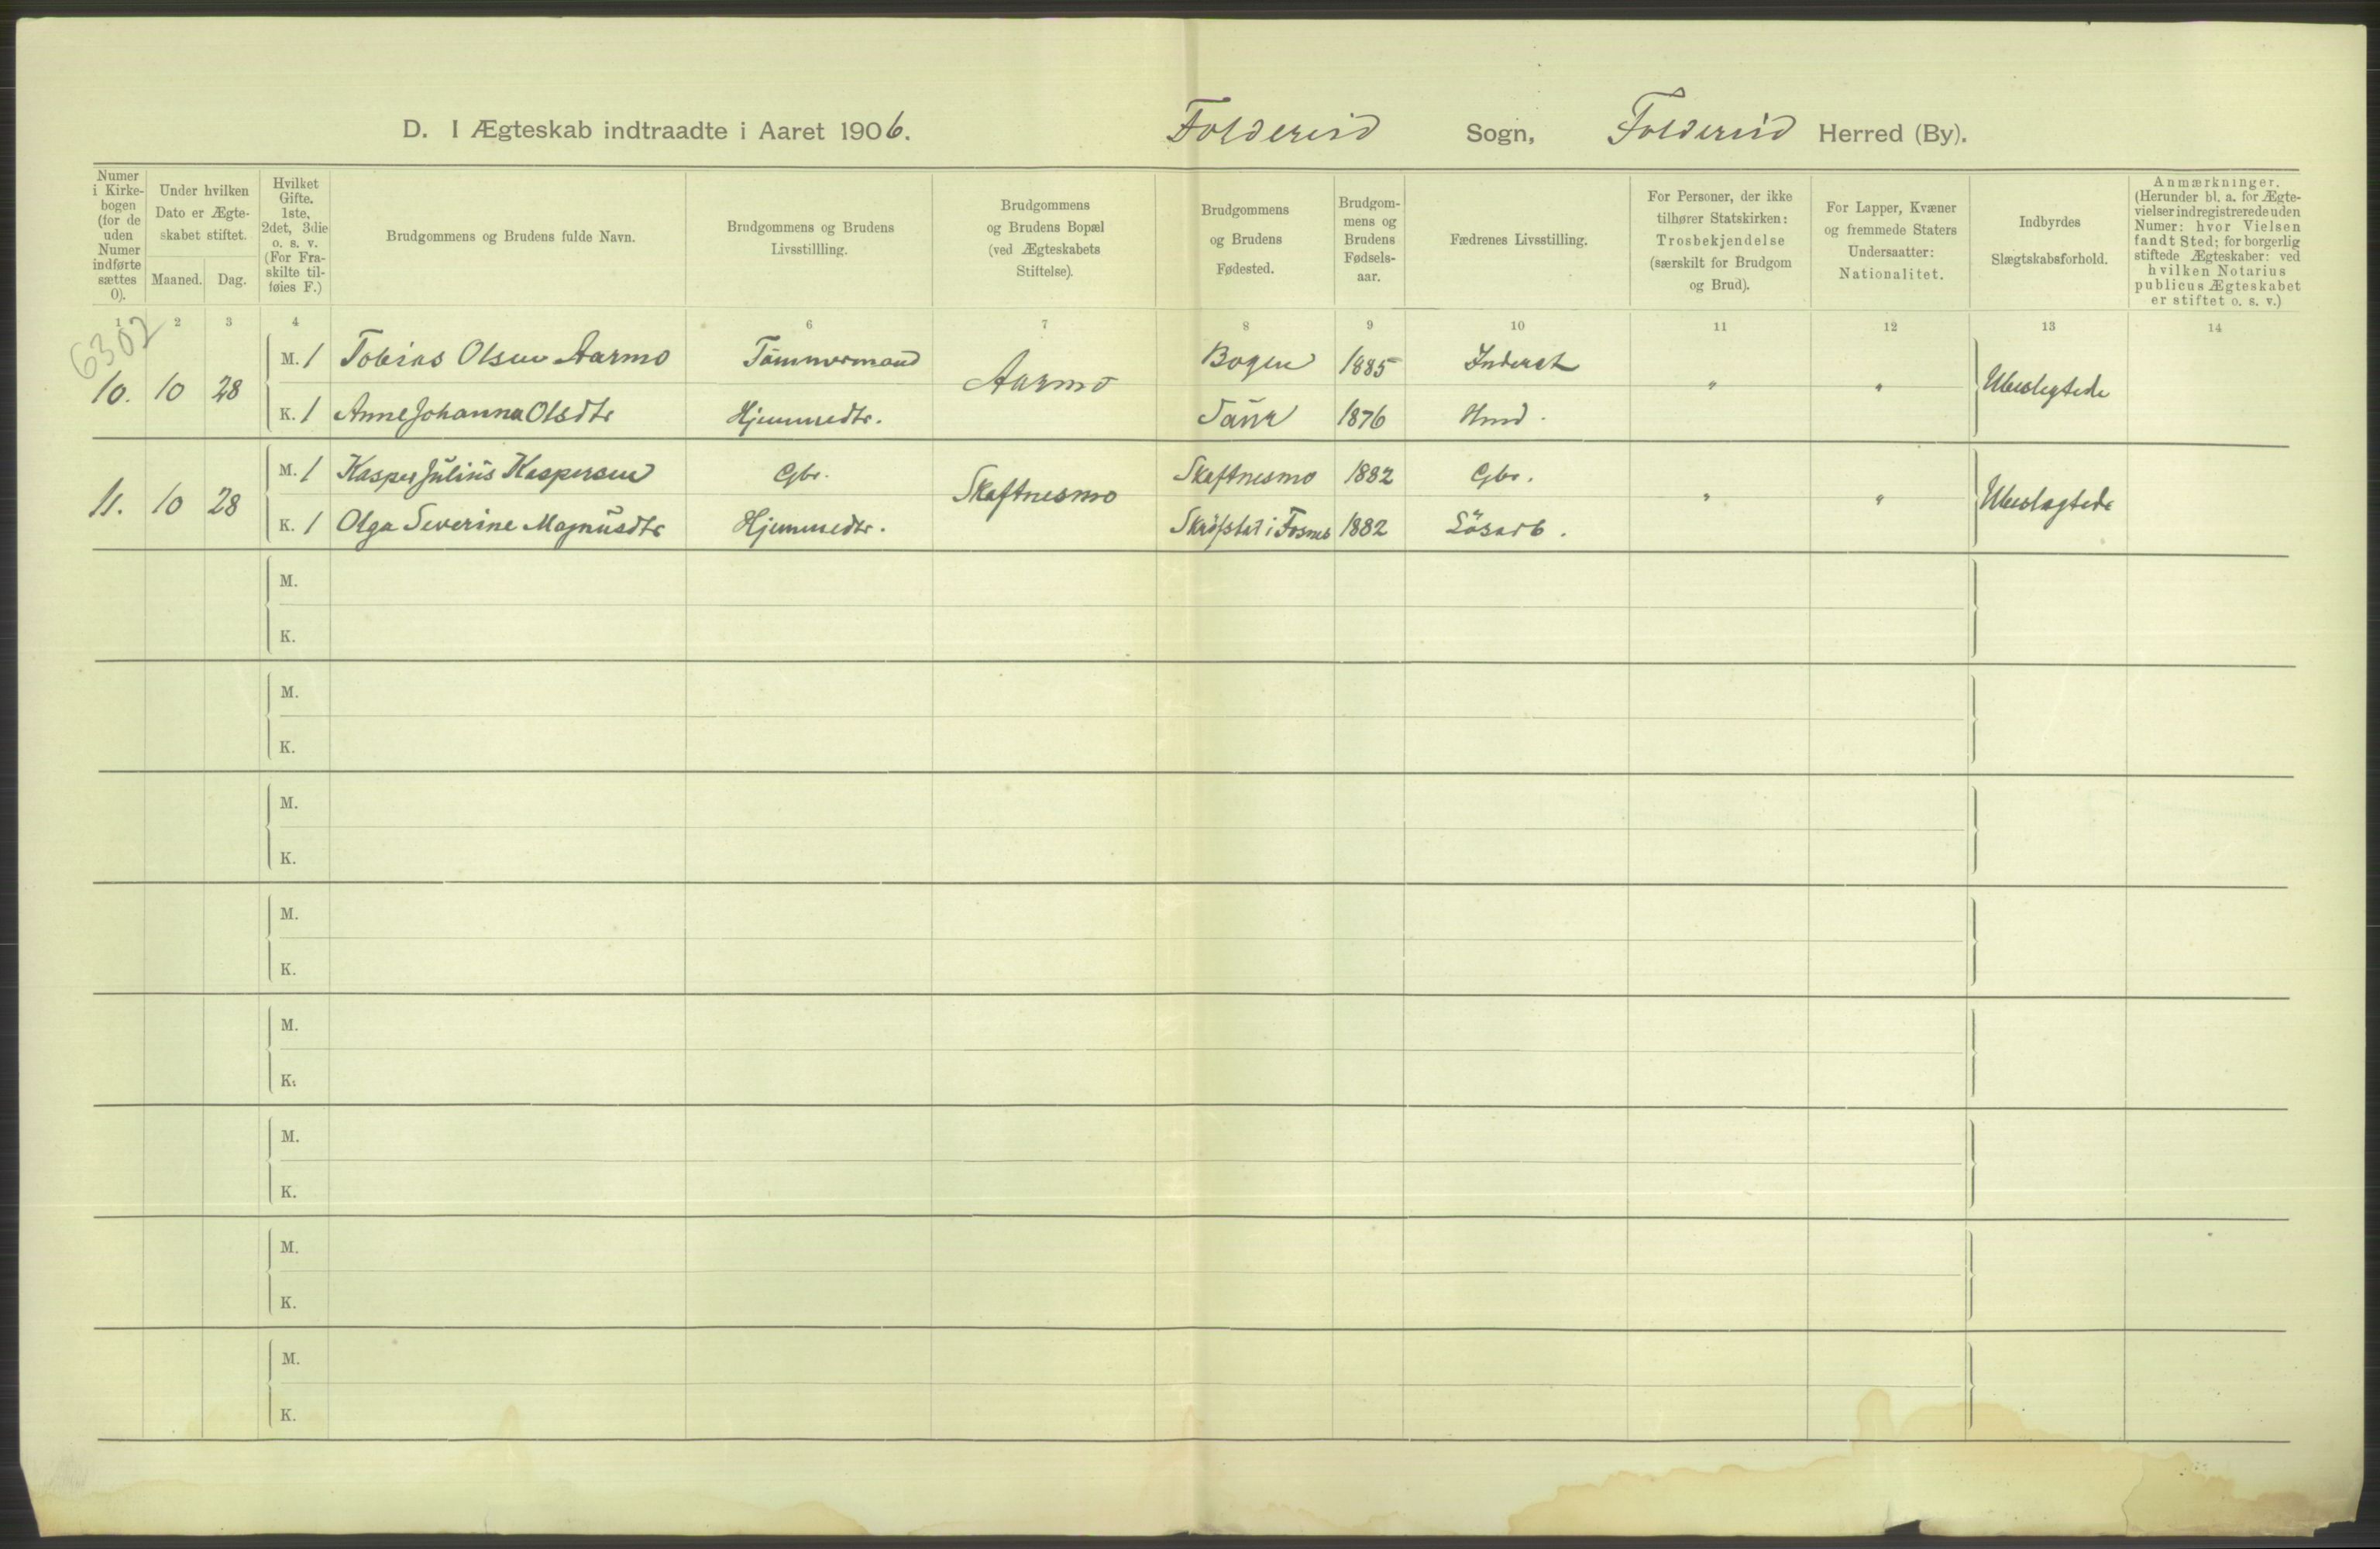 D. I Ægteskab indtraadte i Aaret 1906. Foldereid Sogn, Foldereid Herred (By).
Numer i Kirkebogen (for de uden Numer indførte sættes 0).
Under hvilken Dato er Ægteskabet stiftet.
Maaned. Dag.
Hvilket Gifte. 1ste, 2det, 3die o. s. v. (For Fraskilte tilføies F.)
Brudgommens og Brudens fulde Navn.
Brudgommens og Brudens Livsstillling.
Brudgommens og Brudens Bopæl (ved Ægteskabets Stiftelse).
Brudgommens og Brudens Fødested.
Brudgommens og Brudens Fødselsaar.
Fædrenes Livsstilling.
For Personer, der ikke tilhører Statskirken: Trosbekjendelse (særskilt for Brudgom og Brud).
For Lapper, Kvæner og fremmede Staters Undersaatter: Nationalitet.
Indbyrdes Slægtskabsforhold.
Anmærkninger. (Herunder bl. a. for Ægtevielser indregistrerede uden Numer: hvor Vielsen fandt Sted; for borgerlig stiftede Ægteskaber: ved hvilken Notarius publicus Ægteskabet er stiftet o. s. v.)
1 2 3 4 6 7 8 9 10 11 12 13 14
6302
M. 1 Tobias Olsen Aarmo Tömmermand Bogen 1885 Inderst
10. 10 28 Aarmo " " Ubeslegtede
K. 1 Anne Johanna Olsdtr Hjemmedtr. 1876 Hmd.
M. 1 Kasper Julius Kaspersen Gbr. Skaftnesmo 1882 Gbr.
11. 10 28 Skaftnesmo " " Ubeslægtede
K. 1 Olga Severine Magnusdtr Hjemmedtr. i Fosnes 1882 Lösarb.
M.
K.
M.
K.
M.
K.
M.
K.
M.
K.
M.
K.
M.
K.
M.
K.